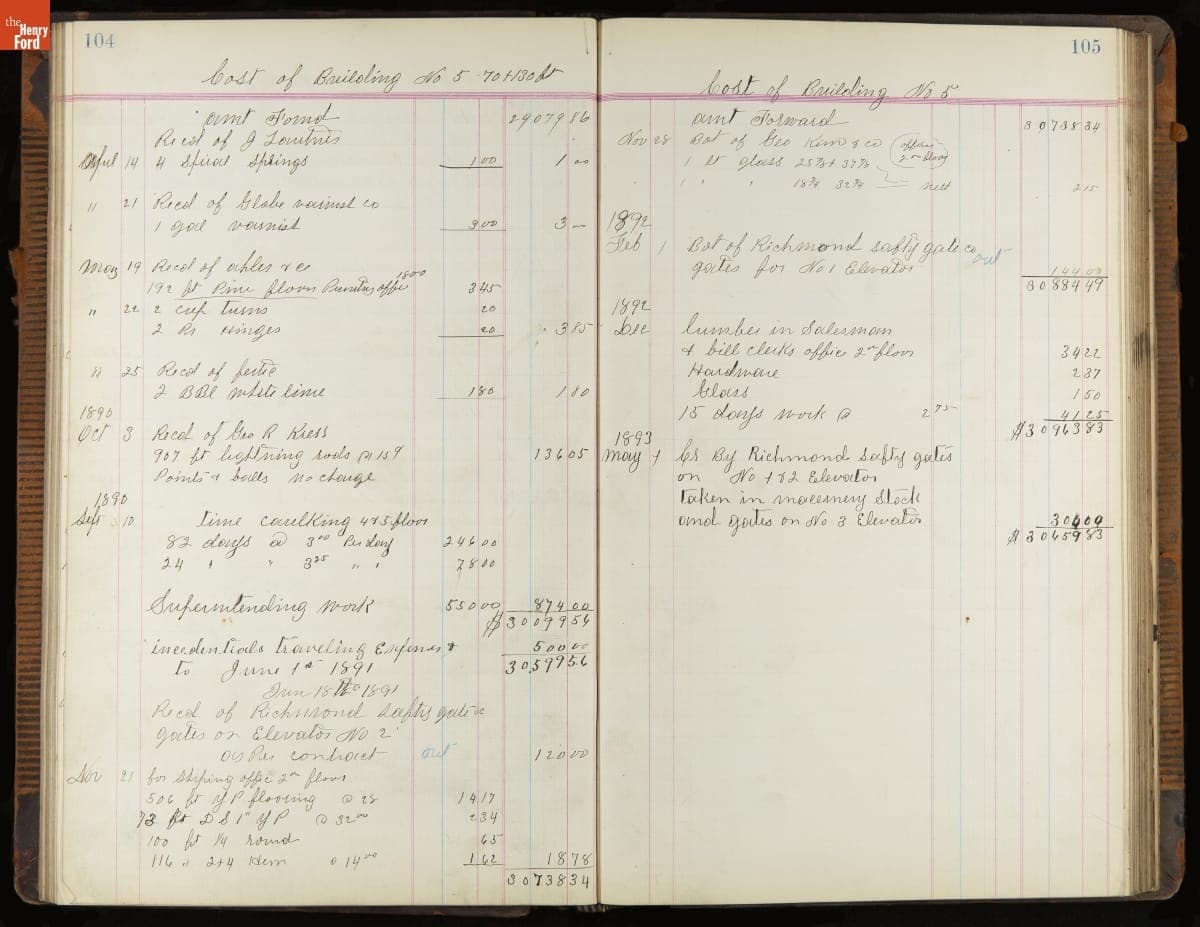 the Henry Ford
104
Cost of Building No 5 70+130 ft
amt Forwd 29079 86
Recd of J
April 14 4 Spiral Springs 1 00 1 00
" 21 Recd of Globe varnist co
1 gal varnist 3 00 3 —
May 19 Recd of ahles & co
192 ft Pine floors Printing offic 18 00 3 45
" 22 2 cup turns 20
2 Pr Hinges 20 3 85
" 25 Recd of
2 BBl white lime 1 80 1 80
1890
Oct 3 Recd of Geo R Kress
907 ft lightning rods @ 15 136 05
Points & balls no charge
1890
Sept 10 time caulking 4 & 5 floor
82 days @ 3 00 Per day 246 00
24 " " 3 25 " " 78 00
Superintending work 550 00 874 00
$ 30099 56
incedentials traveling Expenses &
to June 1st 1891 500 00
30599 56
Jun 18th 1891
Recd of Richmond Safty gate co
gates on Elevator No 2
as Per contract out 120 00
Nov 21 for offic 2nd floor
506 ft Y P flooring @ 28 14 17
73 ft D S 1" Y P @ 32 00 2 34
100 ft 1/4 round 65
116 " 2+4 Hem @ 14 00 1 62 18 78
30738 34
105
Cost of Building No 5
amt Forward 30738 34
Nov 28 Bot of Geo & co office 2nd floor
1 lt glass 25 7/8 + 37 7/8
1 " " 18 3/4 32 3/4 nett 2 15
1892
Feb 1 Bot of Richmond safty gate co
gates for No 1 Elevator out 144 00
30884 49
1892
Dec lumber in Salesman
& bill clerks office 2nd floor 34 22
Hardware 2 37
Glass 1 50
15 days work @ 2 75 41 25
$ 30963 83
1893
May 1 Cr By Richmond Safty gates
on No 1 & 2 Elevator
taken in macenery Stock
and gates on No 3 Elevator 304 00
$ 30659 83